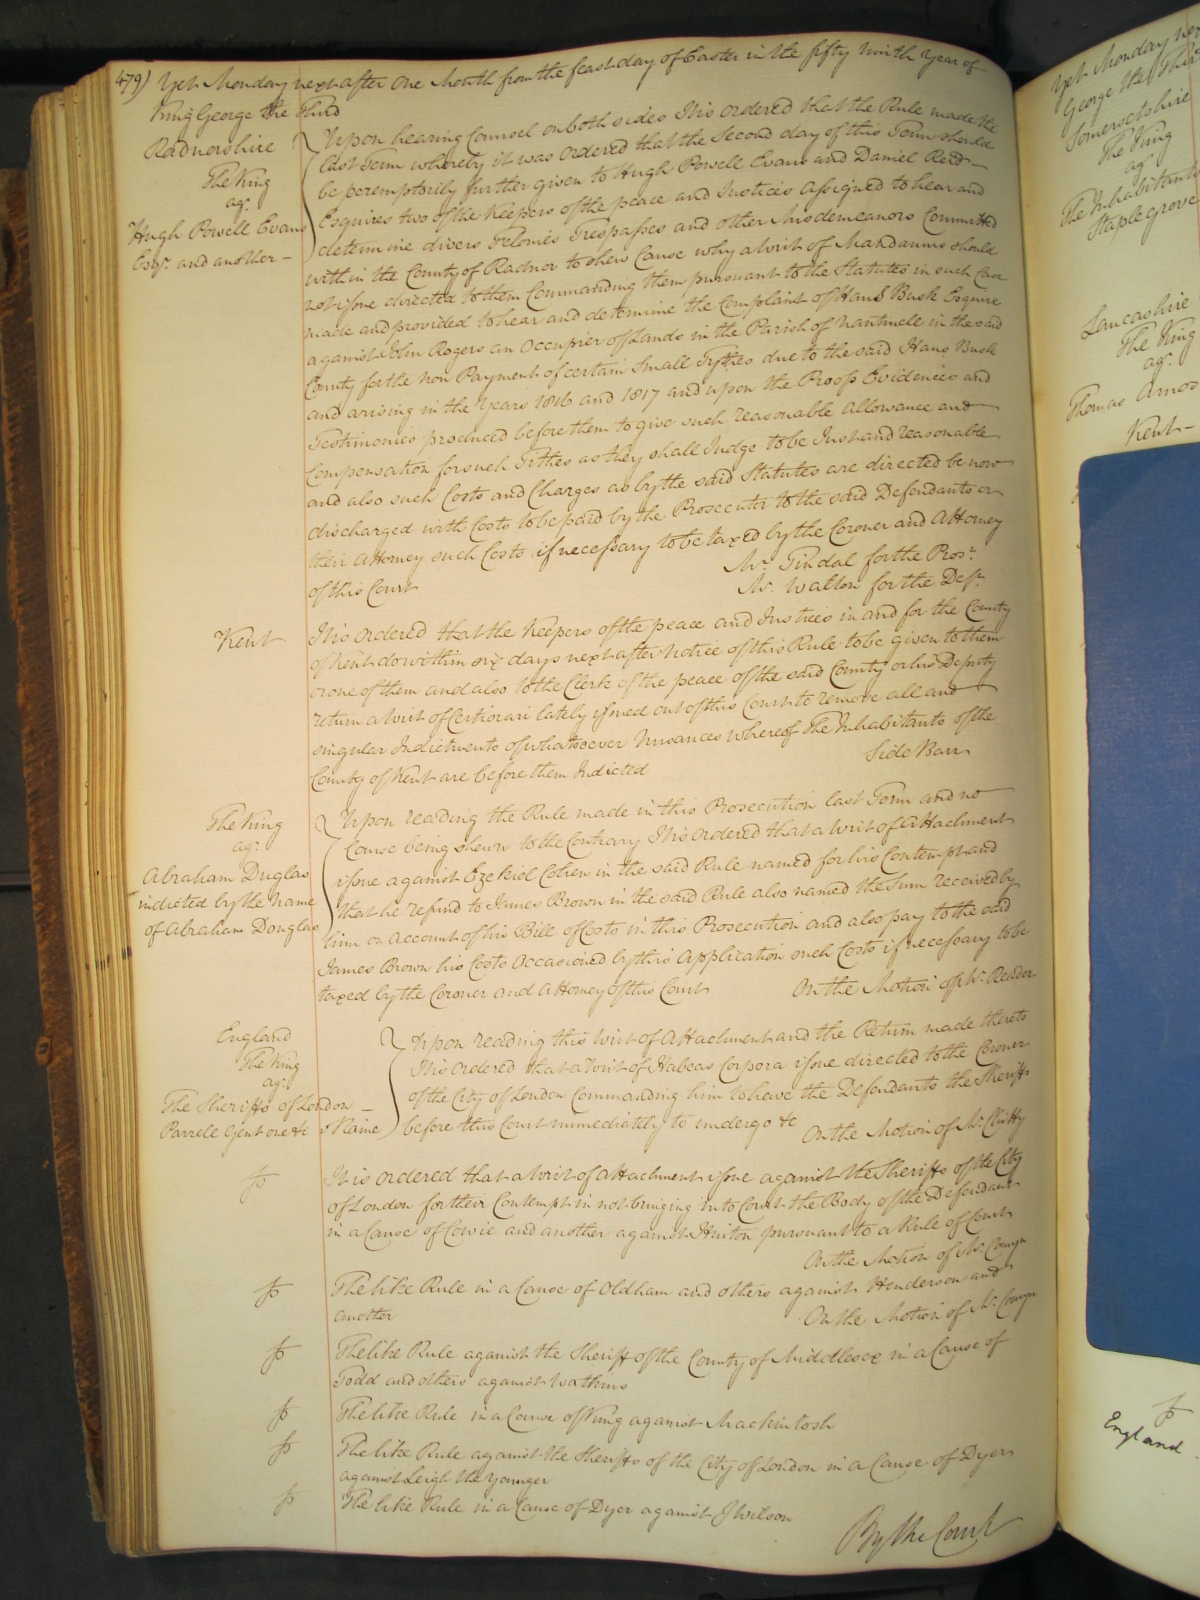 479) Yet Monday next after One Month from the feast day of Easter in the fifty ninth Year of
King George the Third
Radnorshire
The King
agt.
Hugh Powell Evans
Esqr. and another -
Upon hearing Counsel on both sides It is ordered that the Rule made the
last Term whereby it was ordered that the Second day of this Term should
be peremptorily further given to Hugh Powell Evans and Daniel Reid
Esquires two of the Keepers of the peace and Justices assigned to hear and
determine divers Felonies Trespasses and other Misdemeanors Committed
within the County of Radnor to shew Cause why a Writ of Mandamus should
not issue directed to them Commanding them pursuant to the Statutes in such Case
made and provided to hear and determine the Complaint of Hans Busk Esquire
against John Rogers an Occupier of Lands in the Parish of Nantmell in the said
County for the Non Payment of certain Small Tythes due to the said Hans Busk
and arising in the Years 1816 and 1817 and upon the Proofs Evidences and
Testimonies produced before them to give such reasonable allowance and
Compensation for such Tithes as they shall Judge to be Just and reasonable
and also such Costs and Charges as by the said Statutes are directed be now
discharged with Costs to be paid by the Prosecutor to the said Defendants or
their Attorney such Costs if necessary to be taxed by the Coroner and Attorney
of this Court
Mr. Tindal for the Prosr.
Mr. Walton for the Deft.
Kent
It is ordered that the Keepers of the peace and Justices in and for the County
of Kent do within six days next after Notice of this Rule to be given to them
or one of them and also to the Clerk of the peace of the said County or his Deputy
return a Writ of Certiorari lately issued out of this Court to remove all and
singular Indictments of whatsoever Nusances whereof The Inhabitants of the
County of Kent are before them Indicted
Side Barr
The King
agt.
Abraham Duglas
indicted by the name
of Abraham Douglas
Upon reading the Rule made in this Prosecution last Term and no
Cause being shewn to the Contrary It is Ordered that a Writ of Attachment
issue against Ezekiel Cohen in the said Rule named for his Contempt and
that he refund to James Brown in the said Rule also named the Sum received by
him on Account of his Bill of Costs in this Prosecution and also pay to the said
James Brown his Costs Occasioned by this Application such Costs if necessary to be
taxed by the Coroner and Attorney of this Court
On the Motion of Mr. Reader
England
The King
agt.
The Sheriffs of London
Parrele Gent one &c v Raine
Upon reading this Writ of Attachment and the Return made thereto
It is Ordered that a Writ of Habeas Corpora issue directed to the Coroner
of the City of London Commanding him to have the Defendants the Sheriffs
before this Court immediately to undergo &c
On the Motion of Mr. Chitty
It is ordered that a Writ of Attachment issue against the Sheriffs of the City
of London for their Contempt in not bringing into Court the Body of the Defendant
in a Cause of Cowie and another against Hinton pursuant to a Rule of Court
On the Motion of Mr. Comyn
The like Rule in a Cause of Oldham and others against Henderson and
another
On the Motion of Mr. Comyn
The like Rule against the Sheriff of the County of Middlesex in a Cause of
Todd and others against Watkins
The like Rule in a Cause of King against Mackintosh
The like Rule against the Sheriffs of the City of London in a Cause of Dyer
against Leigh the Younger
The like Rule in a Cause of Dyer against J Wilson
By the Court
Yet Monday
George the Third
Somersetshire
The King
agt.
The Inhabitants
Staplegrove
Lancashire
The King
agt.
Thomas Amos
Kent -
England